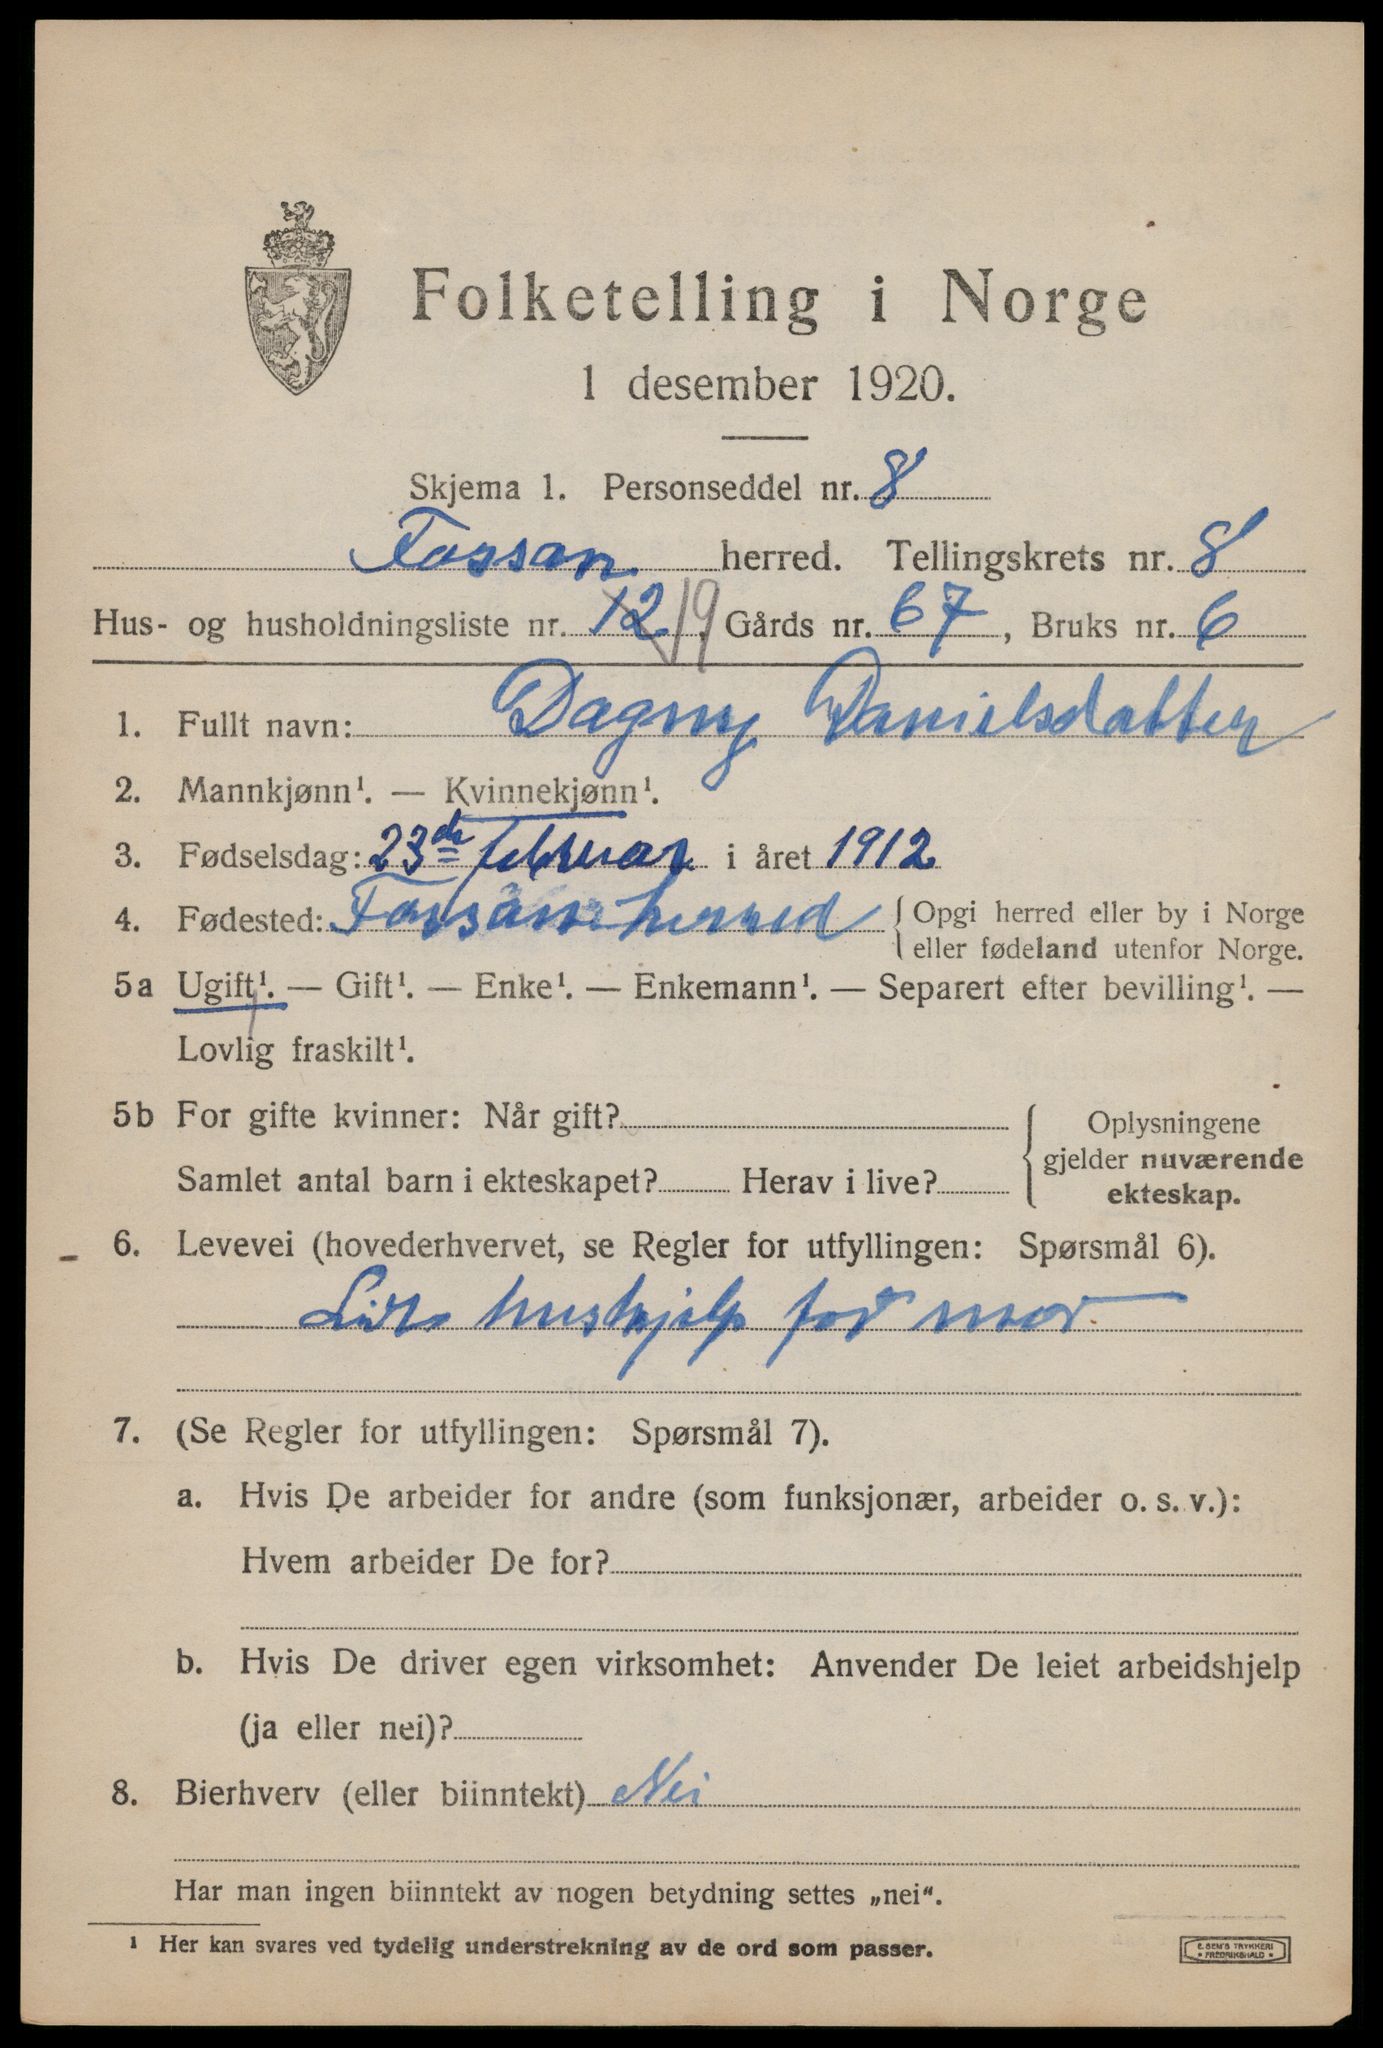 Folketelling i Norge
1 desember 1920.
Skjema 1. Personseddel nr. 8
Fossan herred. Tellingskrets nr. 8
Hus- og husholdningsliste nr. 12 19, Gårds nr. 67, Bruks nr. 6
1. Fullt navn: Dagny Danielsdatter
2. Mannkjønn¹. — Kvinnekjønn¹.
3. Fødselsdag: 23de februar i året 1912
4. Fødested: Fossan herred {Opgi herred eller by i Norge
eller fødeland utenfor Norge.
5a Ugift¹. — Gift¹. — Enke¹. — Enkemann¹. — Separert efter bevilling¹. —
Lovlig fraskilt¹.
5b For gifte kvinner: Når gift? { Oplysningene
gjelder nuværende
Samlet antal barn i ekteskapet? Herav i live? ekteskap.
6. Levevei (hovederhvervet, se Regler for utfyllingen: Spørsmål 6).
hushjelp for mor
7. (Se Regler for utfyllingen: Spørsmål 7).
a. Hvis De arbeider for andre (som funksjonær, arbeider o. s. v.):
Hvem arbeider De for?
b. Hvis De driver egen virksomhet: Anvender De leiet arbeidshjelp
(ja eller nei)?
8. Bierhverv (eller biinntekt) Nei
Har man ingen biinntekt av nogen betydning settes „nei“.
¹ Her kan svares ved tydelig understrekning av de ord som passer.
E. SEM'S TRYKKERI
• FREDRIKSHALD •